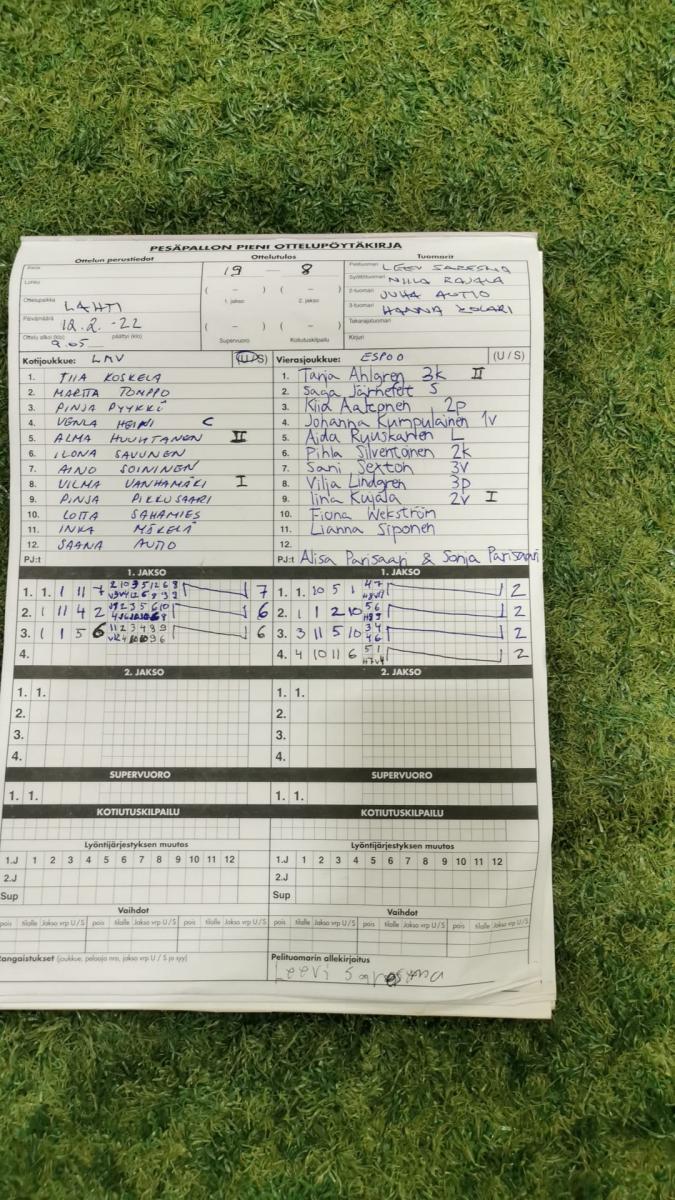 PESÄPALLON PIENI OTTELUPÖYTÄKIRJA
Ottelun perustiedot Ottelutulos Tuomarit
19 — 8
Pelituomari
Lohko Syöttötuomari NIILA RAJALA
( – ) ( – ) 2-tuomari JUHA AUTIO
Ottelupaikka LAHTI 1. jakso 2. jakso 3-tuomari HANNA
Päivämäärä 12.2. -22 ( – ) ( – ) Takarajatuomari
Ottelu alkoi (klo) 9.05 päättyi (klo) Supervuoro Kotiutuskilpailu Kirjuri
Kotijoukkue: LMV (U/S) Vierasjoukkue: ESPOO (U / S)
1. TIIA KOSKELA 1. Tanja Ahlgren 3k II
2. MARITA TOMPPO 2. Saga Järnefelt S
3. PINJA PYYKKÖ 3. Kiia Aaltonen 2p
4. VENLA C 4. Johanna Kumpulainen 1v
5. ALMA HUUHTANEN II 5. Aida Ryuskanen L
6. ILONA SAVUNEN 6. Pihla Silventoinen 2k
7. AINO SOININEN 7. Sani Sexton 3v
8. VILMA VANHAMÄKI I 8. Vilja Lindgren 3p
9. PINJA PIKKUSAARI 9. Iina Kujala 2v I
10. LOTTA SAHAMIES 10. Fiona Wekström
11. INKA MÄKELÄ 11. Lianna Siponen
12. SAANA AUTIO 12.
PJ:t PJ:t Alisa Parisaari & Sonja Parisaari
1. JAKSO 1. JAKSO
1. 1. 1 11 7 7 1. 1. 10 5 1 4 7 2
2. 1 11 4 2 6 2. 1 1 2 10 5 6 2
3. 1 1 5 6 11 2 3 4 8 9 6 3. 3 11 5 10 3 4 4 6 2
4. 4. 4 10 11 6 5 1 2
2. JAKSO 2. JAKSO
1. 1. 1. 1.
2. 2.
3. 3.
4. 4.
SUPERVUORO SUPERVUORO
1. 1. 1. 1.
KOTIUTUSKILPAILU KOTIUTUSKILPAILU
Lyöntijärjestyksen muutos Lyöntijärjestyksen muutos
1.J 1 2 3 4 5 6 7 8 9 10 11 12 1.J 1 2 3 4 5 6 7 8 9 10 11 12
2.J 2.J
Sup Sup
Vaihdot Vaihdot
pois tilalle Jakso vrp U / S pois tilalle Jakso vrp U / S pois tilalle Jakso vrp U / S pois tilalle Jakso vrp U / S
angaistukset (joukkue, pelaaja nro, jakso, vrp U / S ja syy) Pelituomarin allekirjoitus
Leevi